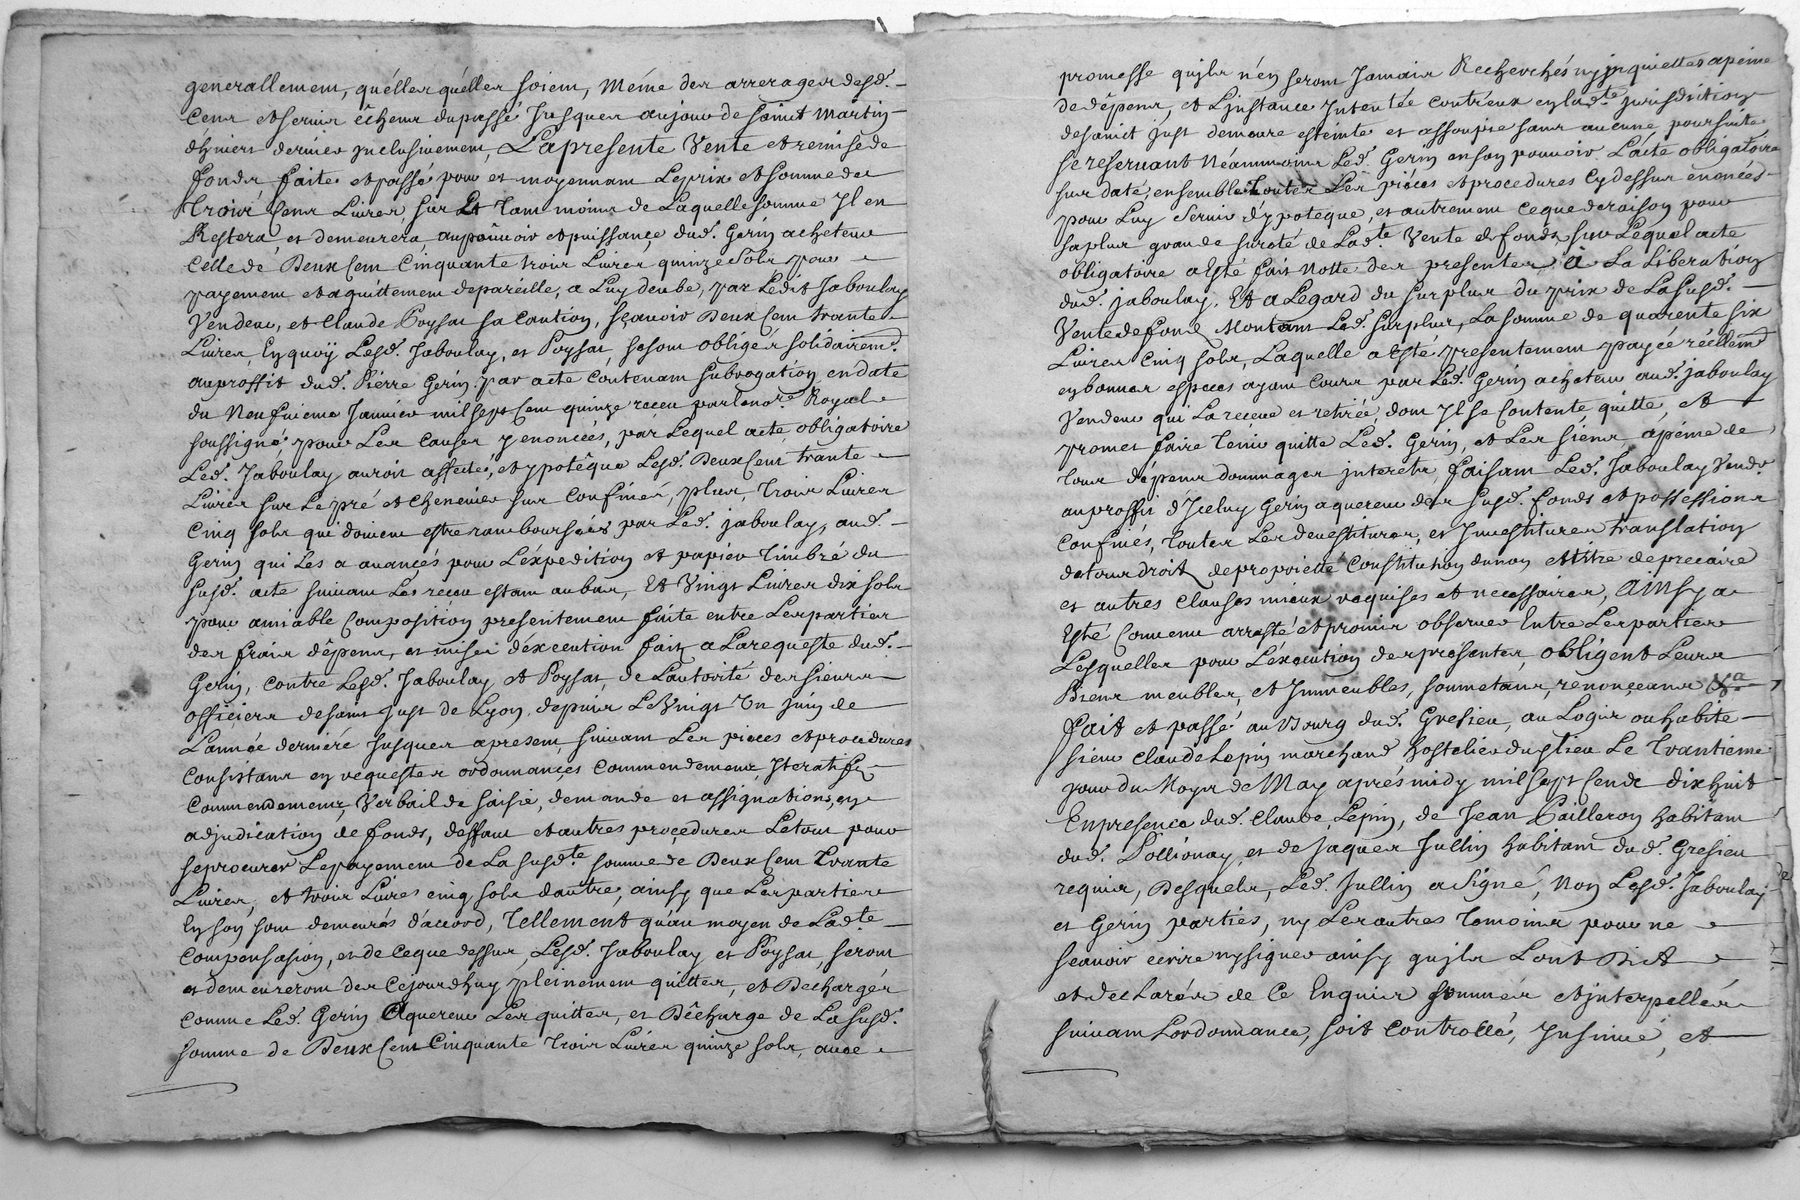 generallement, quélles quélles soient, Méme des arrerages desd.
Cens et servis êcheus du passé Jusques au jour de saint Martin
d'hiniers dernier Inclusivement, La presente Vente et remise de
fonds faite et passé pour et moyennam Le prix et somme de
trois Cens Livres, sur Et tam moins de Laquelle somme Il en
Restera et demeurera, au poûvoir et puissançe dud. Gerin acheteur
Celle de Deux Cent Cinquante trois Livres quinze Sols pour
payement et aquittement de pareille, a Luy deube, par Ledit Jaboulay
Vendeur, et Claude Poysat sa Caution, sçavoir Deux Cent trante
Livres, En quoÿ Lesd. Jaboulay, et Poysat, se sont obligés solidairemt.
au proffit dud. Pierre Gerin par acte Contenam subrogation en date
du Neufvieme Janvier mil sept Cent quinze receu par le nore. Royal
soussigné, pour Les Causes y enoncées, par Lequel acte obligatoire
Led. Jaboulay auroit affecté, et ypotêque Lesd. Deux Cent trante
Livres sur Le pré et Chenevier sus Confinés, plus, trois Livres
Cinq sols qui doivent estre rambourseés par Led. jaboulay, aud.
Gerin qui Les a avançés pour L'expedition et papier timbré du
susd. acte suivam Les receu estam au bas, Et Vingt Livres dix sols
pour amiable Composition presentement faite entre Les parties
des frais dêpens, et mises d'éxecution fait a La requeste dud.
Gerin, Contre Lesd. Jaboulay et Poysat, de L'autorité des sieurs
officiers de saint Just de Lyon, depuis Le Vingt Un Juin de
L'année derniére Jusques a present, suivam Les pieces et procedures
Consistans en requestes ordonnançes Commendemens, Iteratifs
Commendemens, Verbail de saisie, demande et assignations, en
adjudication de fonds, deffaut et autres proçedures Le tout pour
se procurer Le payement de La susdte. somme de Deux Cent trante
Livres, et trois Livres cinq sols d'autre, ainsy que Les parties
En son som demeurés d'accord, Tellement qu'au moyen de Ladte.
Compensasion, et de Ce que dessus, Lesd. Jaboulay et Poysat, seront
et demeureront des Cejourdhuy pleinement quittes, et Dechargés
Comme Led. Gerin Aquereur Les quittes, et Dêcharge de La susd.
somme de Deux Cent Cinquante trois Livres quinze sols, avec
promesse qu'jls n'en seront Jamais Recherchés ny jnquiettes a peine
de dêpens, et L'jnstance Intentée Contr'eux en Ladte. Jurisdiction
de sainct just demeure esteinte et assoupie sans aucune poursuite
se reservant Néammoins Led. Gerin en son pouvoir L'acte obligatoire
sus daté ensemble toutes Les piéces et procedures Cy dessus énoncés
pour Luy servir d'ypoteque, et autrement Ce que de raison pour
sa plus grande sureté de Ladte. Vente de fonds, sur Lequel acte
obligatoire a Esté fait Notte des presentes, a La Libération
dud. jaboulay. Et a Legard du surplus du prix de La susd.
Vente de fond Montam Led. surplus, La somme de quarente six
Livres Cinq sols, Laquelle a Esté presentement payée réellemt.
en bonnes espeçes ayam Cours par Led. Gerin acheteur aud. jaboulay
Vendeur qui La receue et retirée, dom Il se Contente quitte, et
promet faire tenir quitte Led. Gerin, et Les siens a péme de
tous dépens dommages jnterets, faisam Led. Jaboulay Vendr.
au proffit d'Jceluy Gerin aquereur des susd. fonds et possessions
Confinés, toutes Les devestitures, et Jnvestitures translation
de tous droits de proprieté Constitution dunon et titre de precaire
et autres Clauses mieux requises et necessaires, Ainsy a
Esté Convenu arresté et promis observer Entre Les parties
Lesquelles pour L'éxecution des présentes, obligent Leurs
Biens meubles, et Jmmeubles, soumetans, renonçeans &a.
fait et passé au Bourg dud. Gresieu, au Logis ou habite
sieur Claude Lepin marchand hostelier dud lieu Le trantieme
jour du Moys de May aprés midy mil sept Cents dixhuit
En presence dud. Claude Lépin, de Jean Cailleron habitam
dud. Pollionay, et de Jaques Jullin habitant dud. Gresieu
requis, Desquels, Led. Jullin a Signé, Non Lesd. Jaboulay
et Gerin parties, ny Les autres temoins pour ne
sçavoir écrire ny signer ainsy qu'jls L'ont Dit
et declarér de Ce Enquis sommés et jnterpellés
suivam L'ordonnance, soit Controllé, Jnsinué, et